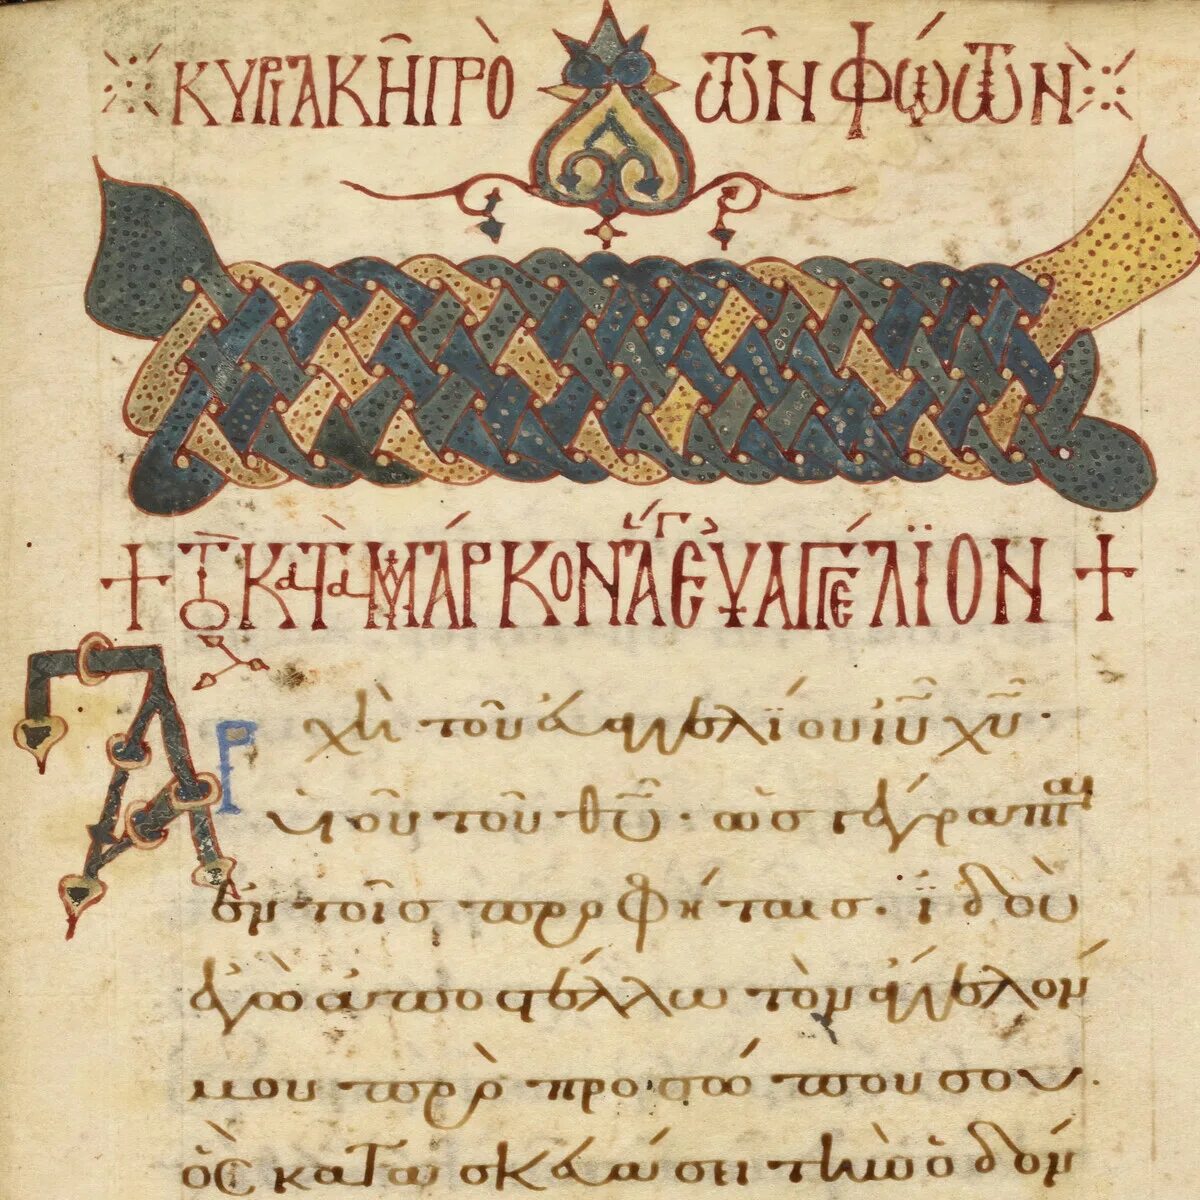 ΚΥΡΙΑΚῊ ΠΡῸ ΤῶΝ ΦΏΤΩΝ
+ ΤῸ ΚΑΤᾺ ΜΆΡΚΟΝ ἍΓ ΕΥ̓ΑΓΓΈΛΪΟΝ +
Ἀρχὴ τοῦ ἐυαγγελΐου ἰῦ χῦ·
ὑιοῦ τοῦ θῦ· ὡσ γέγραπται
ἐν τοῖσ προφήταισ· ϊδοὺ
ἐγὼ ἀποστέλλω τὸν ἄγγελόν
μου πρὸ προσώπου σου·
ὃσ κατασκευάσει τὴν ὁδόν